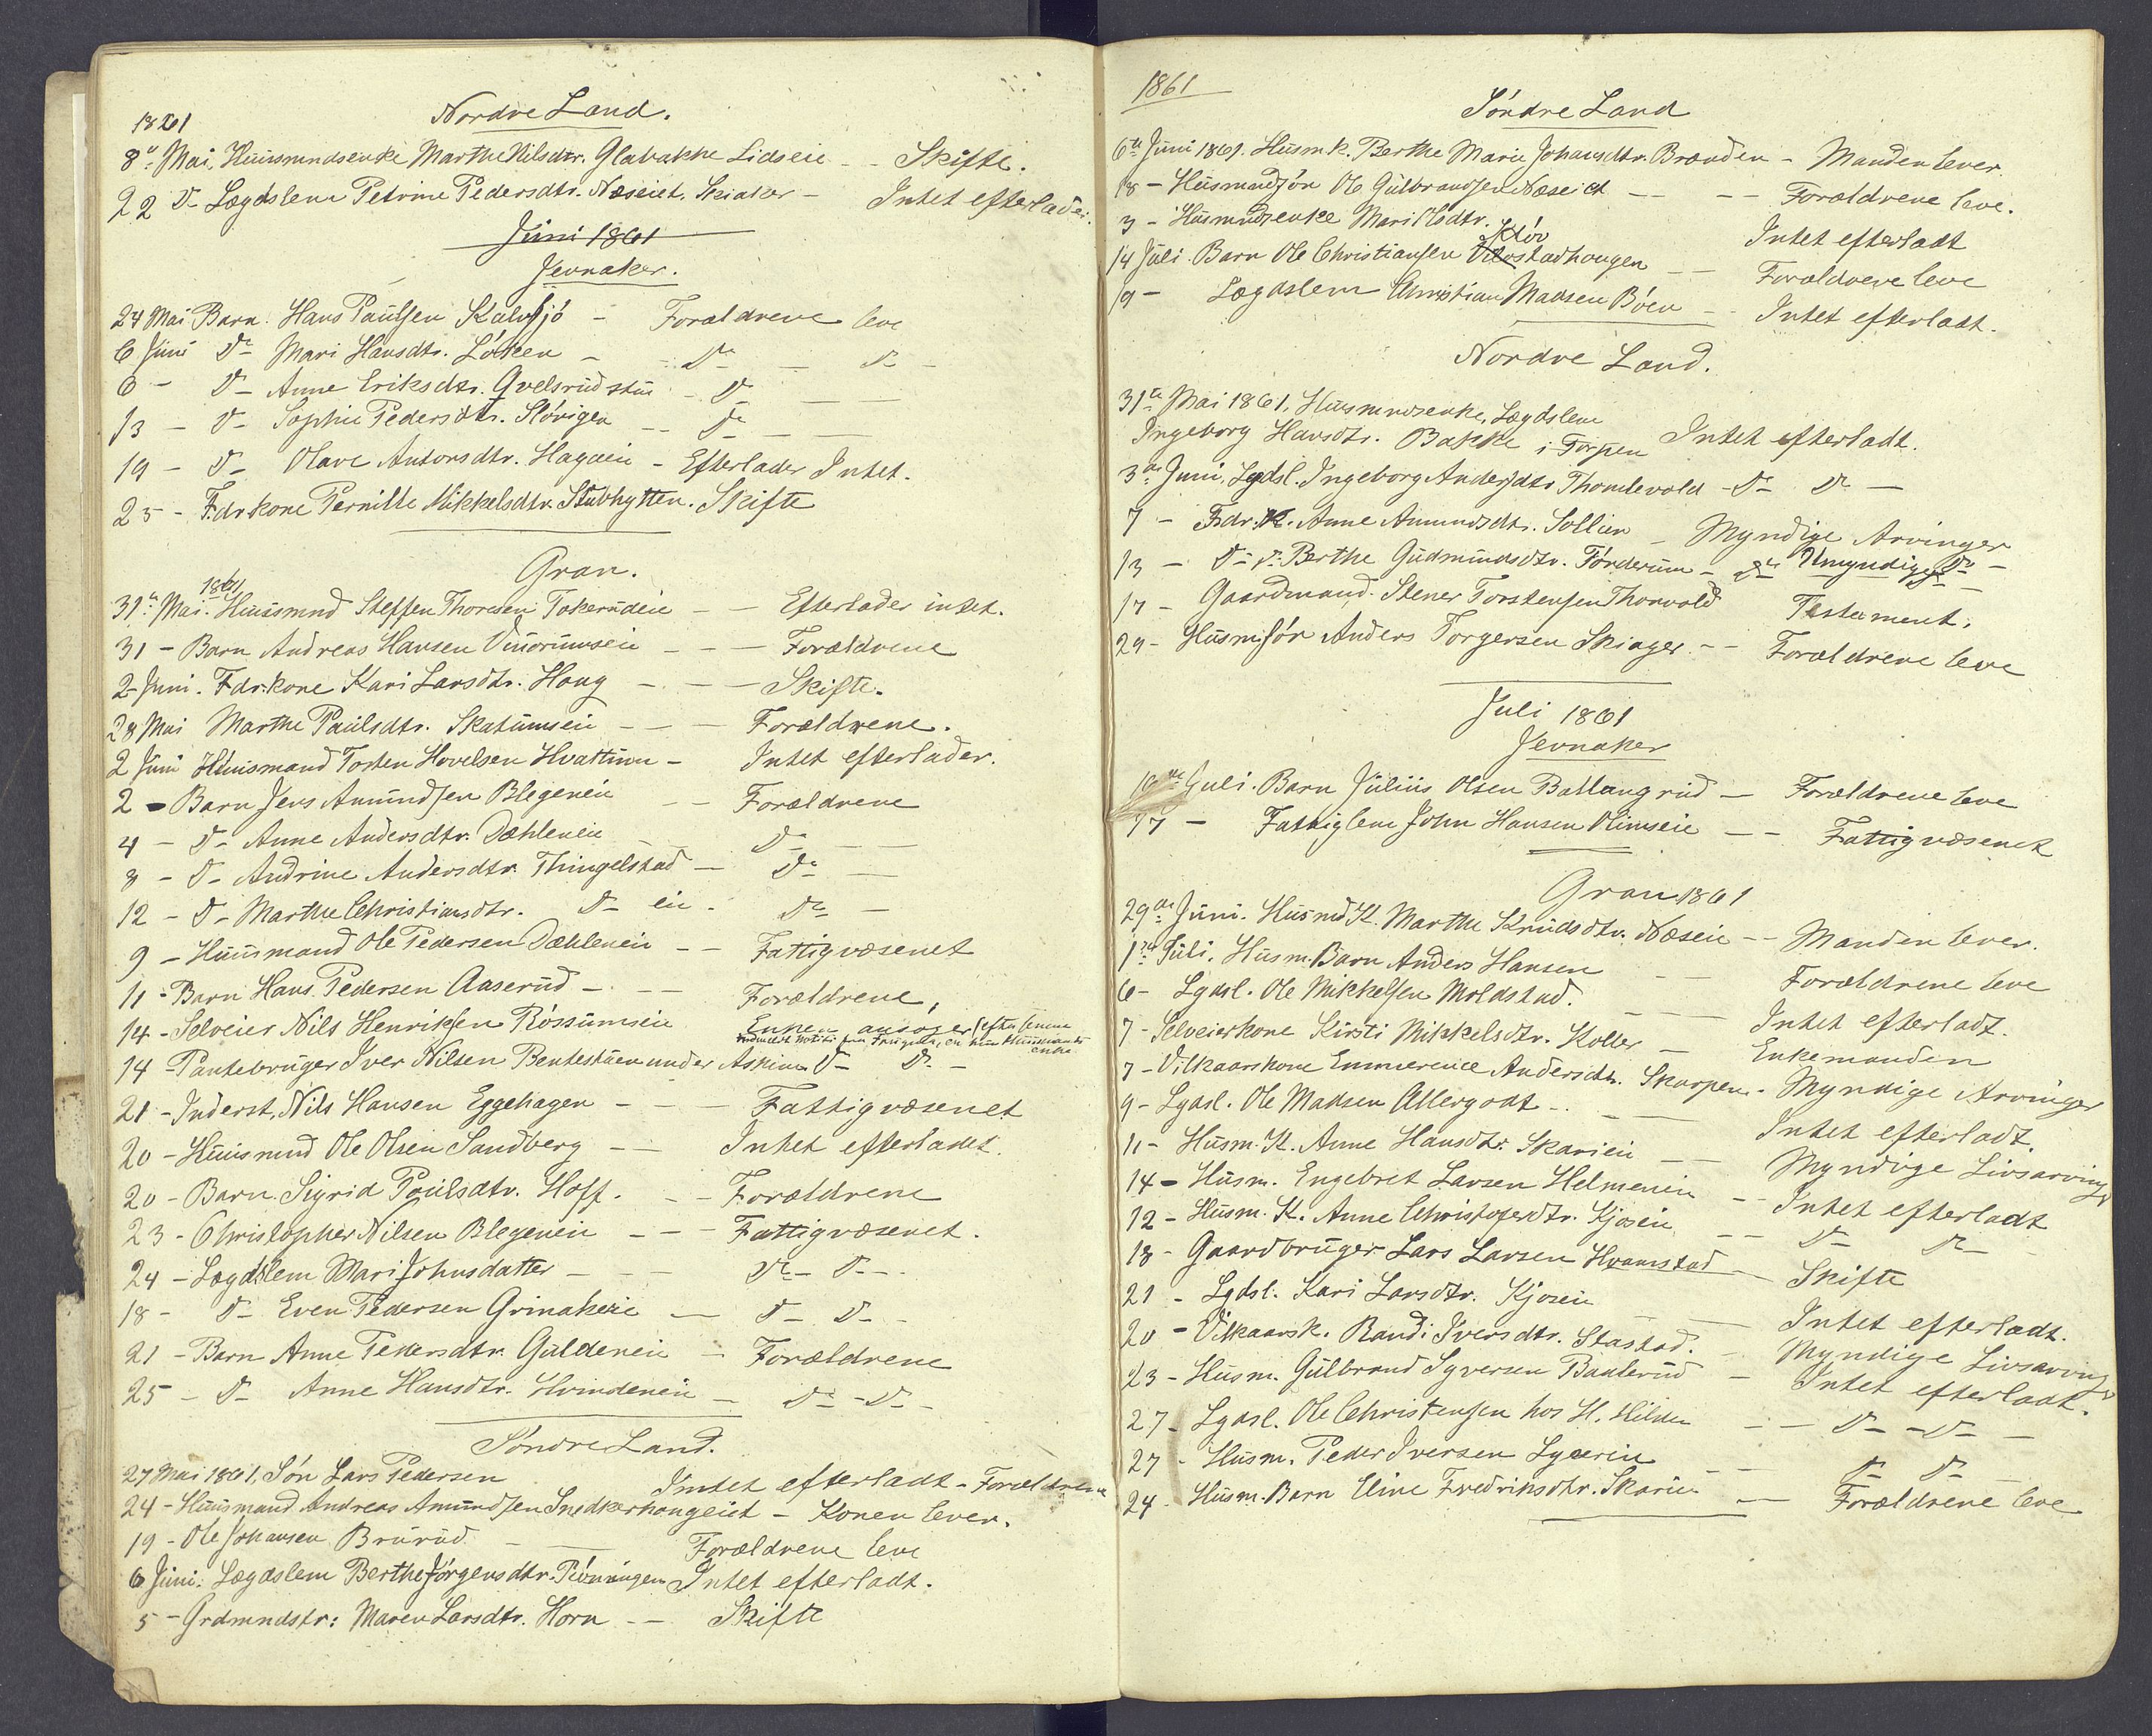 1861
Nordre Land.
8de Mai. Huusmndsenke Marthe Nilsdtr. Glabakke Lidseie - - Skifte.
22 Do Lægdslem Petrine Pedersdtr. Næseiet, Skiaker - Intet efterlader.
Juni 1861
Jevnaker.
24 Mai Barn. Hans Paulsen Kalvsjö - Forældrene leve
6 Juni Do - Mari Hansdtr. Löken - Do - Do -
6 - Do - Anne Eriksdtr. Gvelsrudstu - Do
13 - Do - Sophie Pedersdtr. Slövigen - - Do -
19 - Do - Olave Antonsdtr. Hagaeie - Efterlader Intet.
25 - Fdrkone Pernille Mikkelsdtr. Stubhytten. Skifte
Gran.
1861
31te Mai. Huusmnd Steffen Thoresen Tokerudeie - - Efterlader intet.
31 - Barn Andreas Hansen - - - Forældrene
2 Juni. Fdr.kone Kari Larsdtr. Haug - - - Skifte.
28 Mai Marthe Paulsdtr. Skatumseie - - - Forældrene.
2 Juni Huusmand Tosten Hovelsen Hvattum - Intet efterlader.
2 - Barn Jens Amundsen Blegeneie - - Forældrene
4 - Do - Anne Andersdtr. Dæhleneie Do - -
8 - Do - Andrine Andersdtr. Thingelstad - Do -
12 - Do - Marthe Christiansdtr. Do - eie - Do -
9 - Huusmand Ole Pedersen Dæhleneie - - Fattigvæsenet
11 - Barn Hans Pedersen Aaserud - - - Forældrene,
14 - Selveier Nils Henriksen Rössumseie Enken
14 - Pantebruger Iver Nilsen Bentestuen under Askim Do - Do -
21 - Inderst, Nils Hansen Eggehagen - - - Fattigvæsenet
20 - Huusmnd Ole Olsen Sandberg - - Intet efterladt.
20 - Barn. Sigrid Poulsdtr. Hoff. - - Forældrene
23 - Christopher Nilsen Blegeneie - - Fattigvæsenet.
24 - Lægdslem Mari Johnsdatter - - - Do - Do - -
18 - Do - Even Pedersen Grinakerie - Do - Do -
21 - Barn Anne Pedersdtr. Guldeneie - Forældrene
25 - Do - Anne Hansdtr. Hvindeneie - Do - Do -
Söndre Land.
27 Mai 1861, Sön Lars Pedersen Intet efterladt - Forældrene
24 - Huusmand Andreas Amundsen Snedkerhaugeiet - Konen lever.
19 - Ole Johansen Brurud - Forældrene leve
6 Juni. Lægdslem Berthe Jörgensdtr. Intet efterladt.
5 - Grdmndstr: Maren Larsdtr. Horn - - Skifte
1861
Söndre Land
6te Juni 1861. Husmk. Berthe Marie Johansdtr. Brænden - Manden lever.
18 - Husmndsön Ole Gulbrandsen Næseiet - - - - Forældrene leve.
3 - Husmndsenke Mari Olsdtr. Intet efterladt
14 Juli. Barn Ole Christiansen stadhaugen - - Forældrene leve
19 - Lægdslem Christian Madsen Böen - - Intet efterladt.
Nordre Land.
31te Mai 1861, Husmndsenke, Lægdslem
Ingeborg Hansdtr. Bakke i Torpen Intet efterladt.
3de Juni, Lgdsl. Ingeborg Andersdtr Thondevold - Do - Do -
7 - Fdr. K. Anne Amundsdtr. Sollien - Myndige Arvinger
13 - Do - Do - Berthe Gudmundsdtr. Förderum - Do Umyndige Do -
17 - Gaardmand. Stener Torstensen Thorvold Testament.
29 - Husmsön Anders Torgersen Skiager - - Forældrene leve
Juli 1861
Jevnaker
Juli. Barn Julius Olsen Ballangrud - Forældrene leve
17 - Fattiglem John Hansen Olimseie - - Fattigvæsenet
Gran 1861
29de Juni. Husmd K. Marthe Knudsdtr. Næseie - - Manden lever.
1ste Juli. Husm. Barn Anders Hansen - - Forældrene leve
6 - Lgdsl. Ole Mikkelsen Moldstad. - - Intet efterladt.
7 - Selveierkone Kirsti Mikkelsdtr. Koller - Enkemanden
7 - Vilkaarskone Emmerence Andersdtr. Skarpen - Myndige Arvinger
9 - Lgdsl. Ole Madsen Allergodt - - Intet efterladt.
11 - Husm. K. Anne Hansdtr. Skarieie - - Myndige Livsarving
14 - Husm. Engebret Larsen Helmeneie - - Intet efterladt
12 - Husm. K. Anne Christofersdtr. Kjoseie - - Do - Do -
18 - Gaardbruger Lars Larsen Hvamstad - Skifte
21 - Lgdsl. Kari Larsdtr. Kjoseie - - Intet efterladt.
20 - Vilkaarsk. Randi Iversdtr. Stastad. - Myndige Livsarving
23 - Husm. Gulbrand Syversen Baalerud - Intet efterladt.
27 - Lgdsl. Ole Christensen hos H. Hilden - - Do - Do -
27 - Husm. Peder Iversen Lyseeie - Do Do -
24 - Husm. Barn Eline Fredriksdtr. Skarieie - Forældrene leve